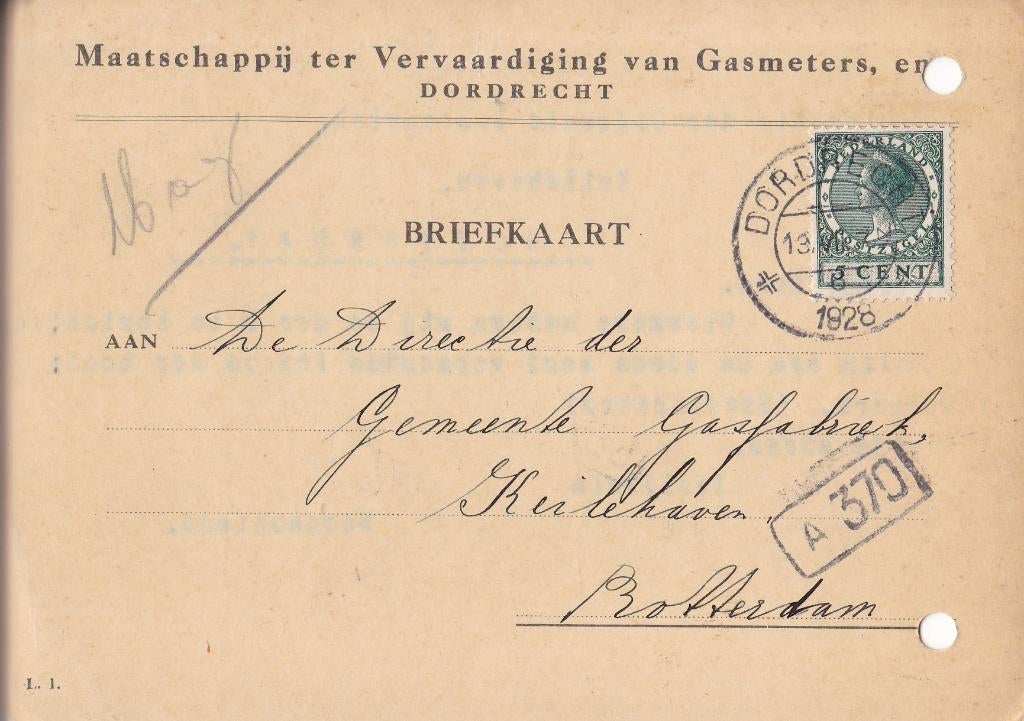 Maatschappij ter Vervaardiging van Gasmeters, en
DORDRECHT
NEDERLAND
POSTZEGEL
5 CENT
DORDRECHT
1928
BRIEFKAART
AAN De Directie der
Gemeente Gasfabriek,
Keilehaven,
A 370
Rotterdam
L. 1.